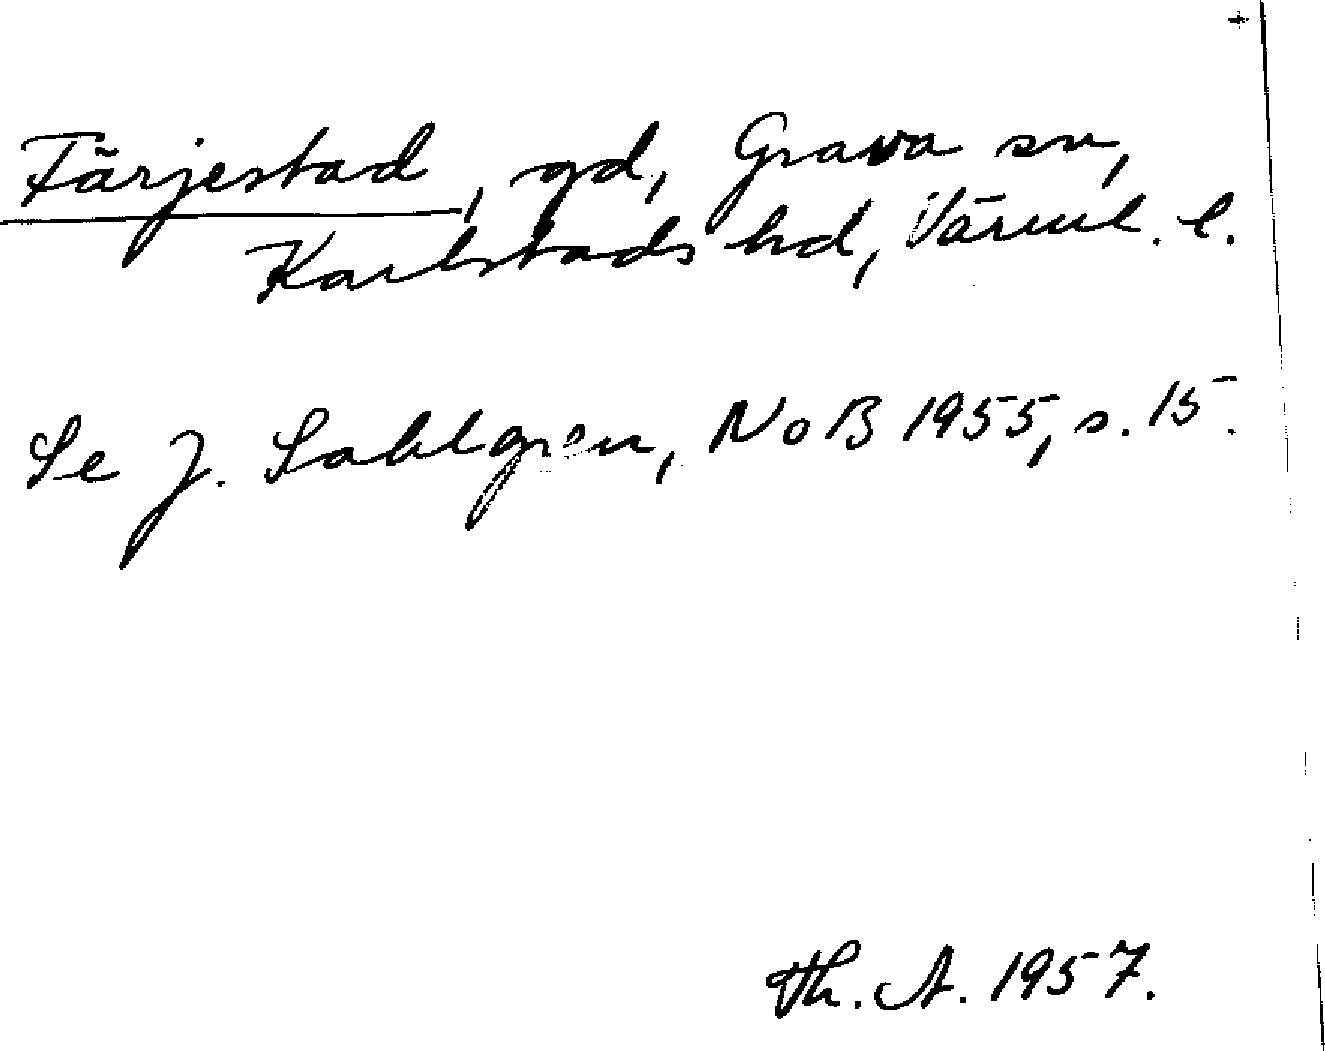 Färjestad, gd, Grava sn,
Karlstads hd, Värml. l.
Se J. Sahlgren, NoB 1955, s. 15.
Th. A. 1957.